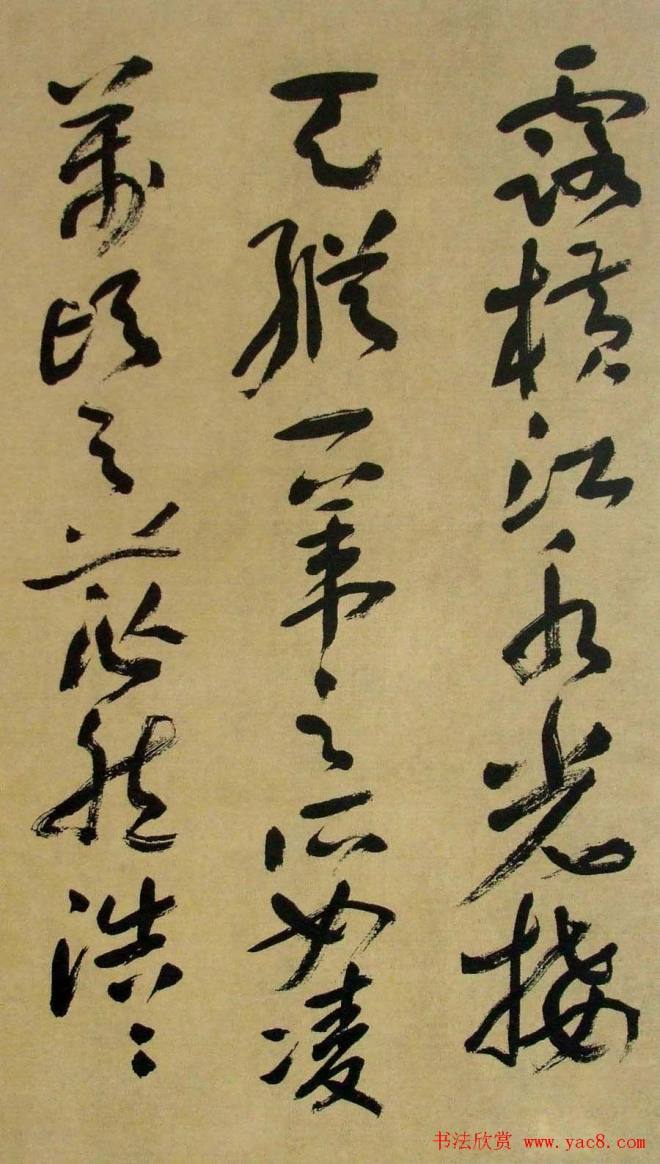 露横江水光接
天纵一苇之所如凌
萬顷之茫然浩〻
书法欣赏 www.yac8.com